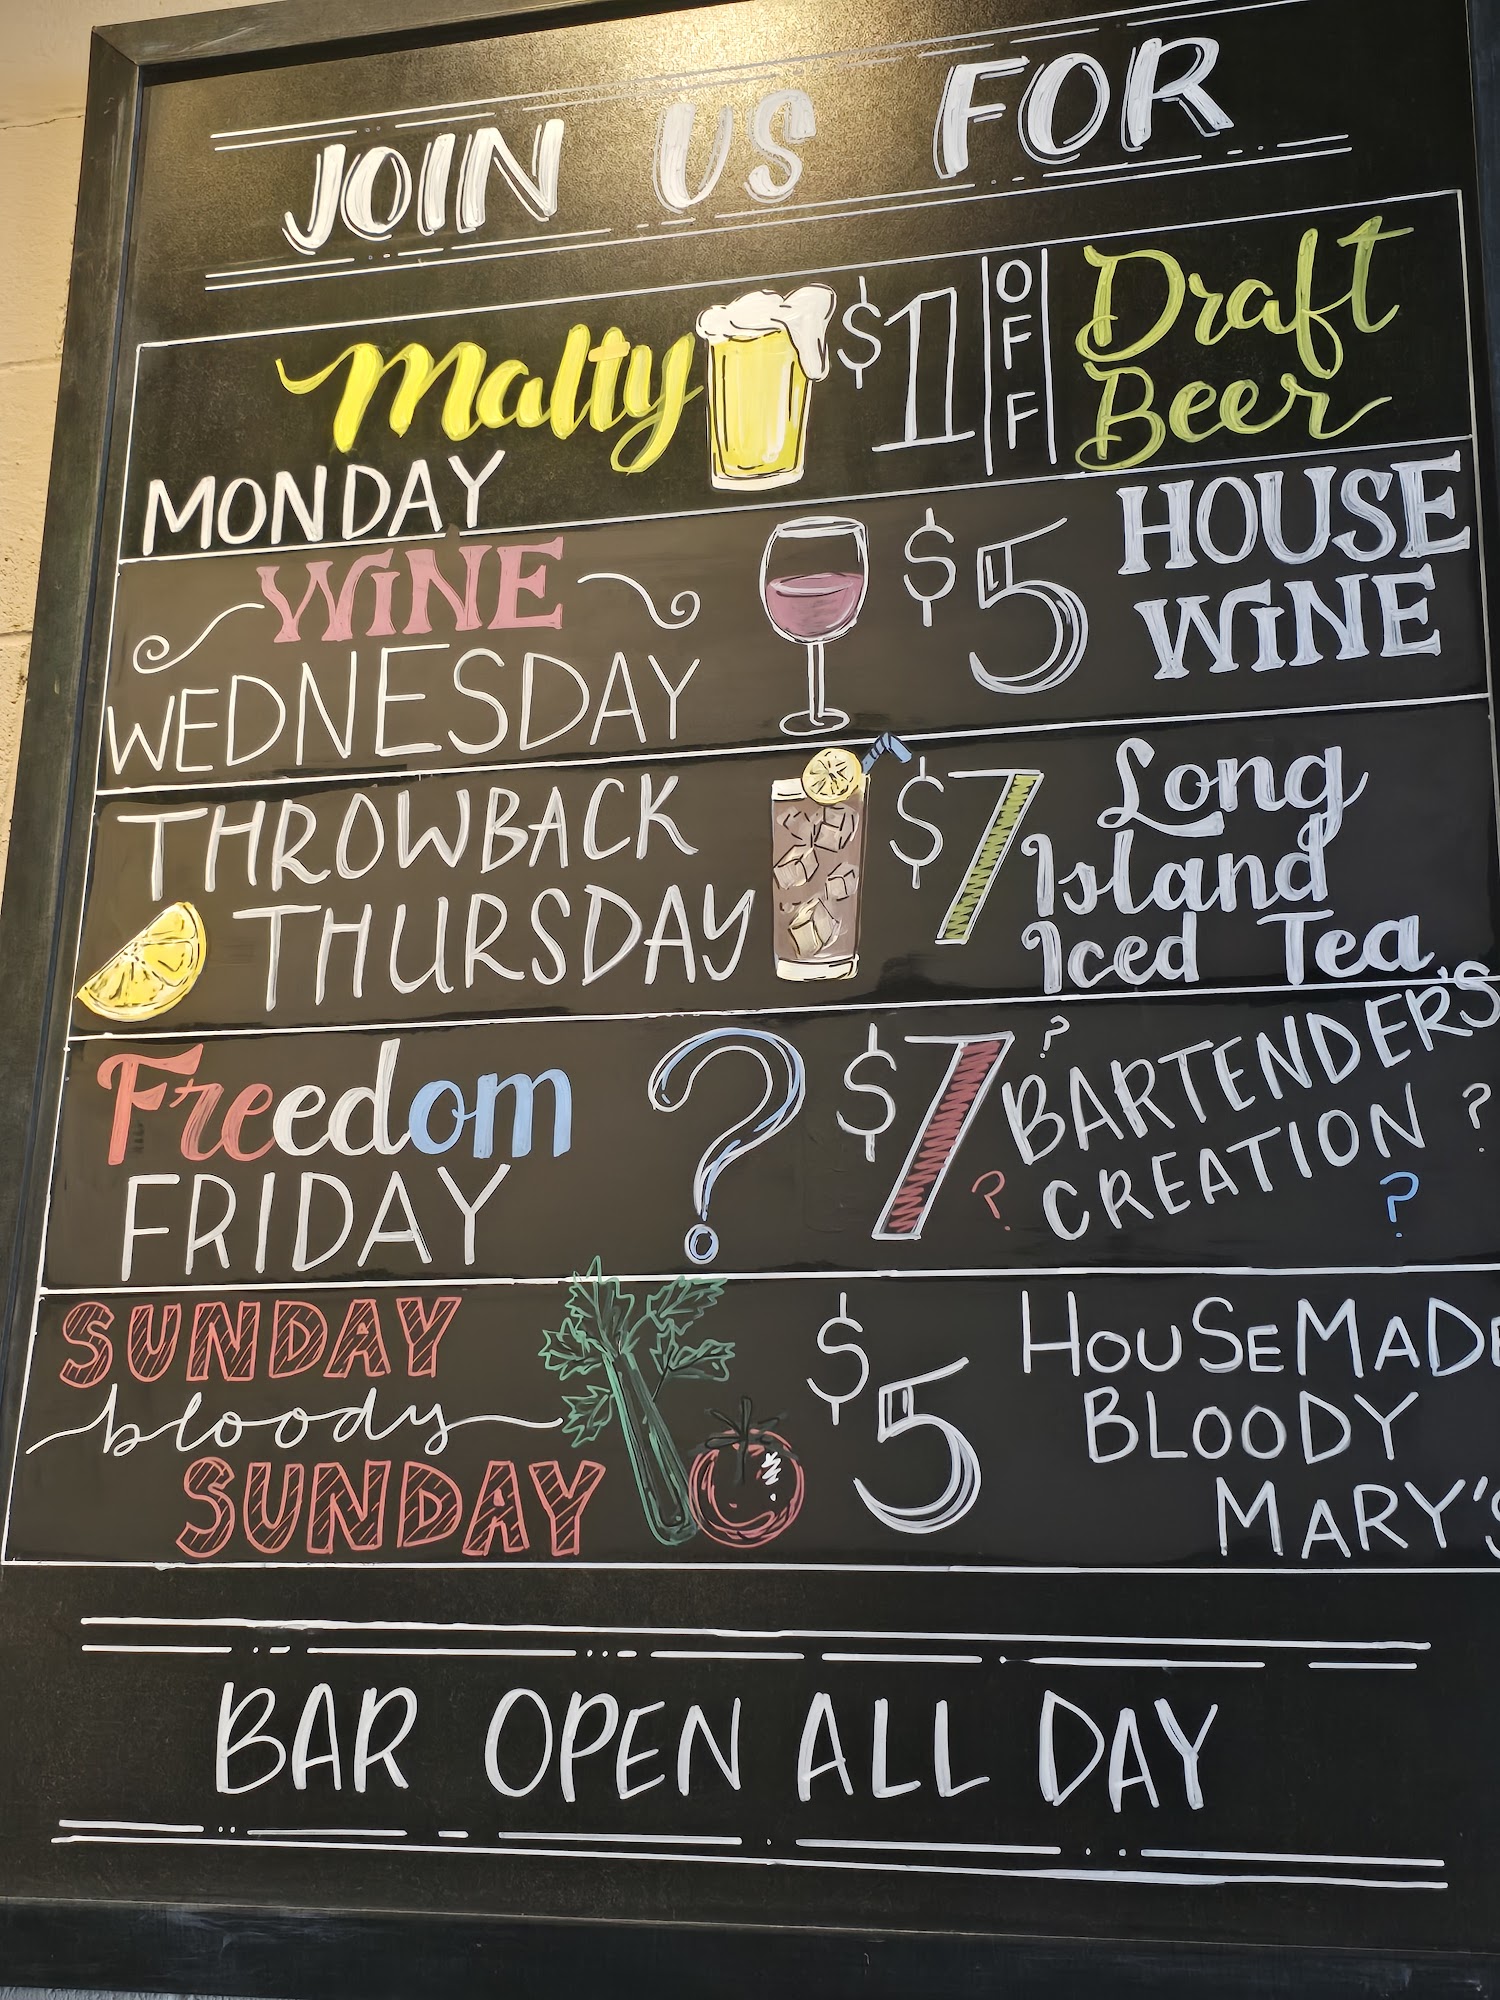 JOIN US FOR
Malty
MONDAY
$1 OFF
Draft
Beer
WINE
WEDNESDAY
$5
HOUSE
WINE
THROWBACK
THURSDAY
$7
Long
Island
Iced Tea
Freedom
FRIDAY
?
$7
?
BARTENDER'S
CREATION ?
? ?
SUNDAY
bloody
SUNDAY
$5
HOUSEMADE
BLOODY
MARY'S
BAR OPEN ALL DAY